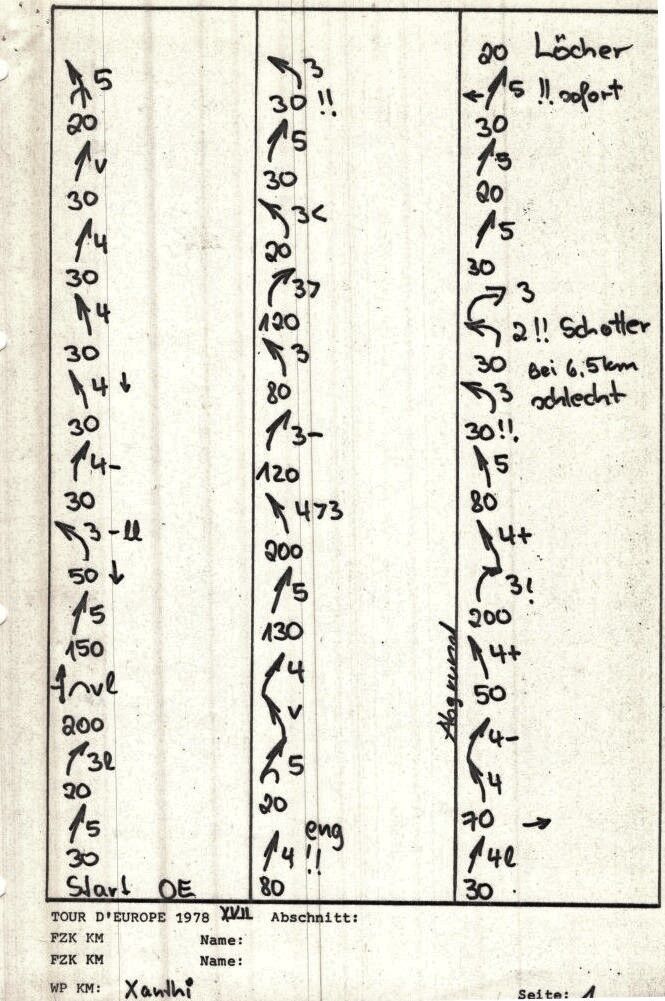 5
20
v
30
4
30
4
30
4 ↓
30
4-
30
3-ll
50 ↓
5
150
vl
200
3l
20
5
30
Start OE
3
30 !!
5
30
3<
20
3>
120
3
80
3-
120
4>3
200
5
130
4
v
5
20
eng
4 !!
80
20 Löcher
← 5 !! sofort
30
5
20
5
30
3
2!! Schotter
30 Bei 6,5km
3 schlecht
30!!
5
80
4+
3!
200
4+
50
Abgrund
4-
4
70 →
4l
30
TOUR D'EUROPE 1978 XVII Abschnitt:
FZK KM Name:
FZK KM Name:
WP KM: Xanthi
Seite: 1